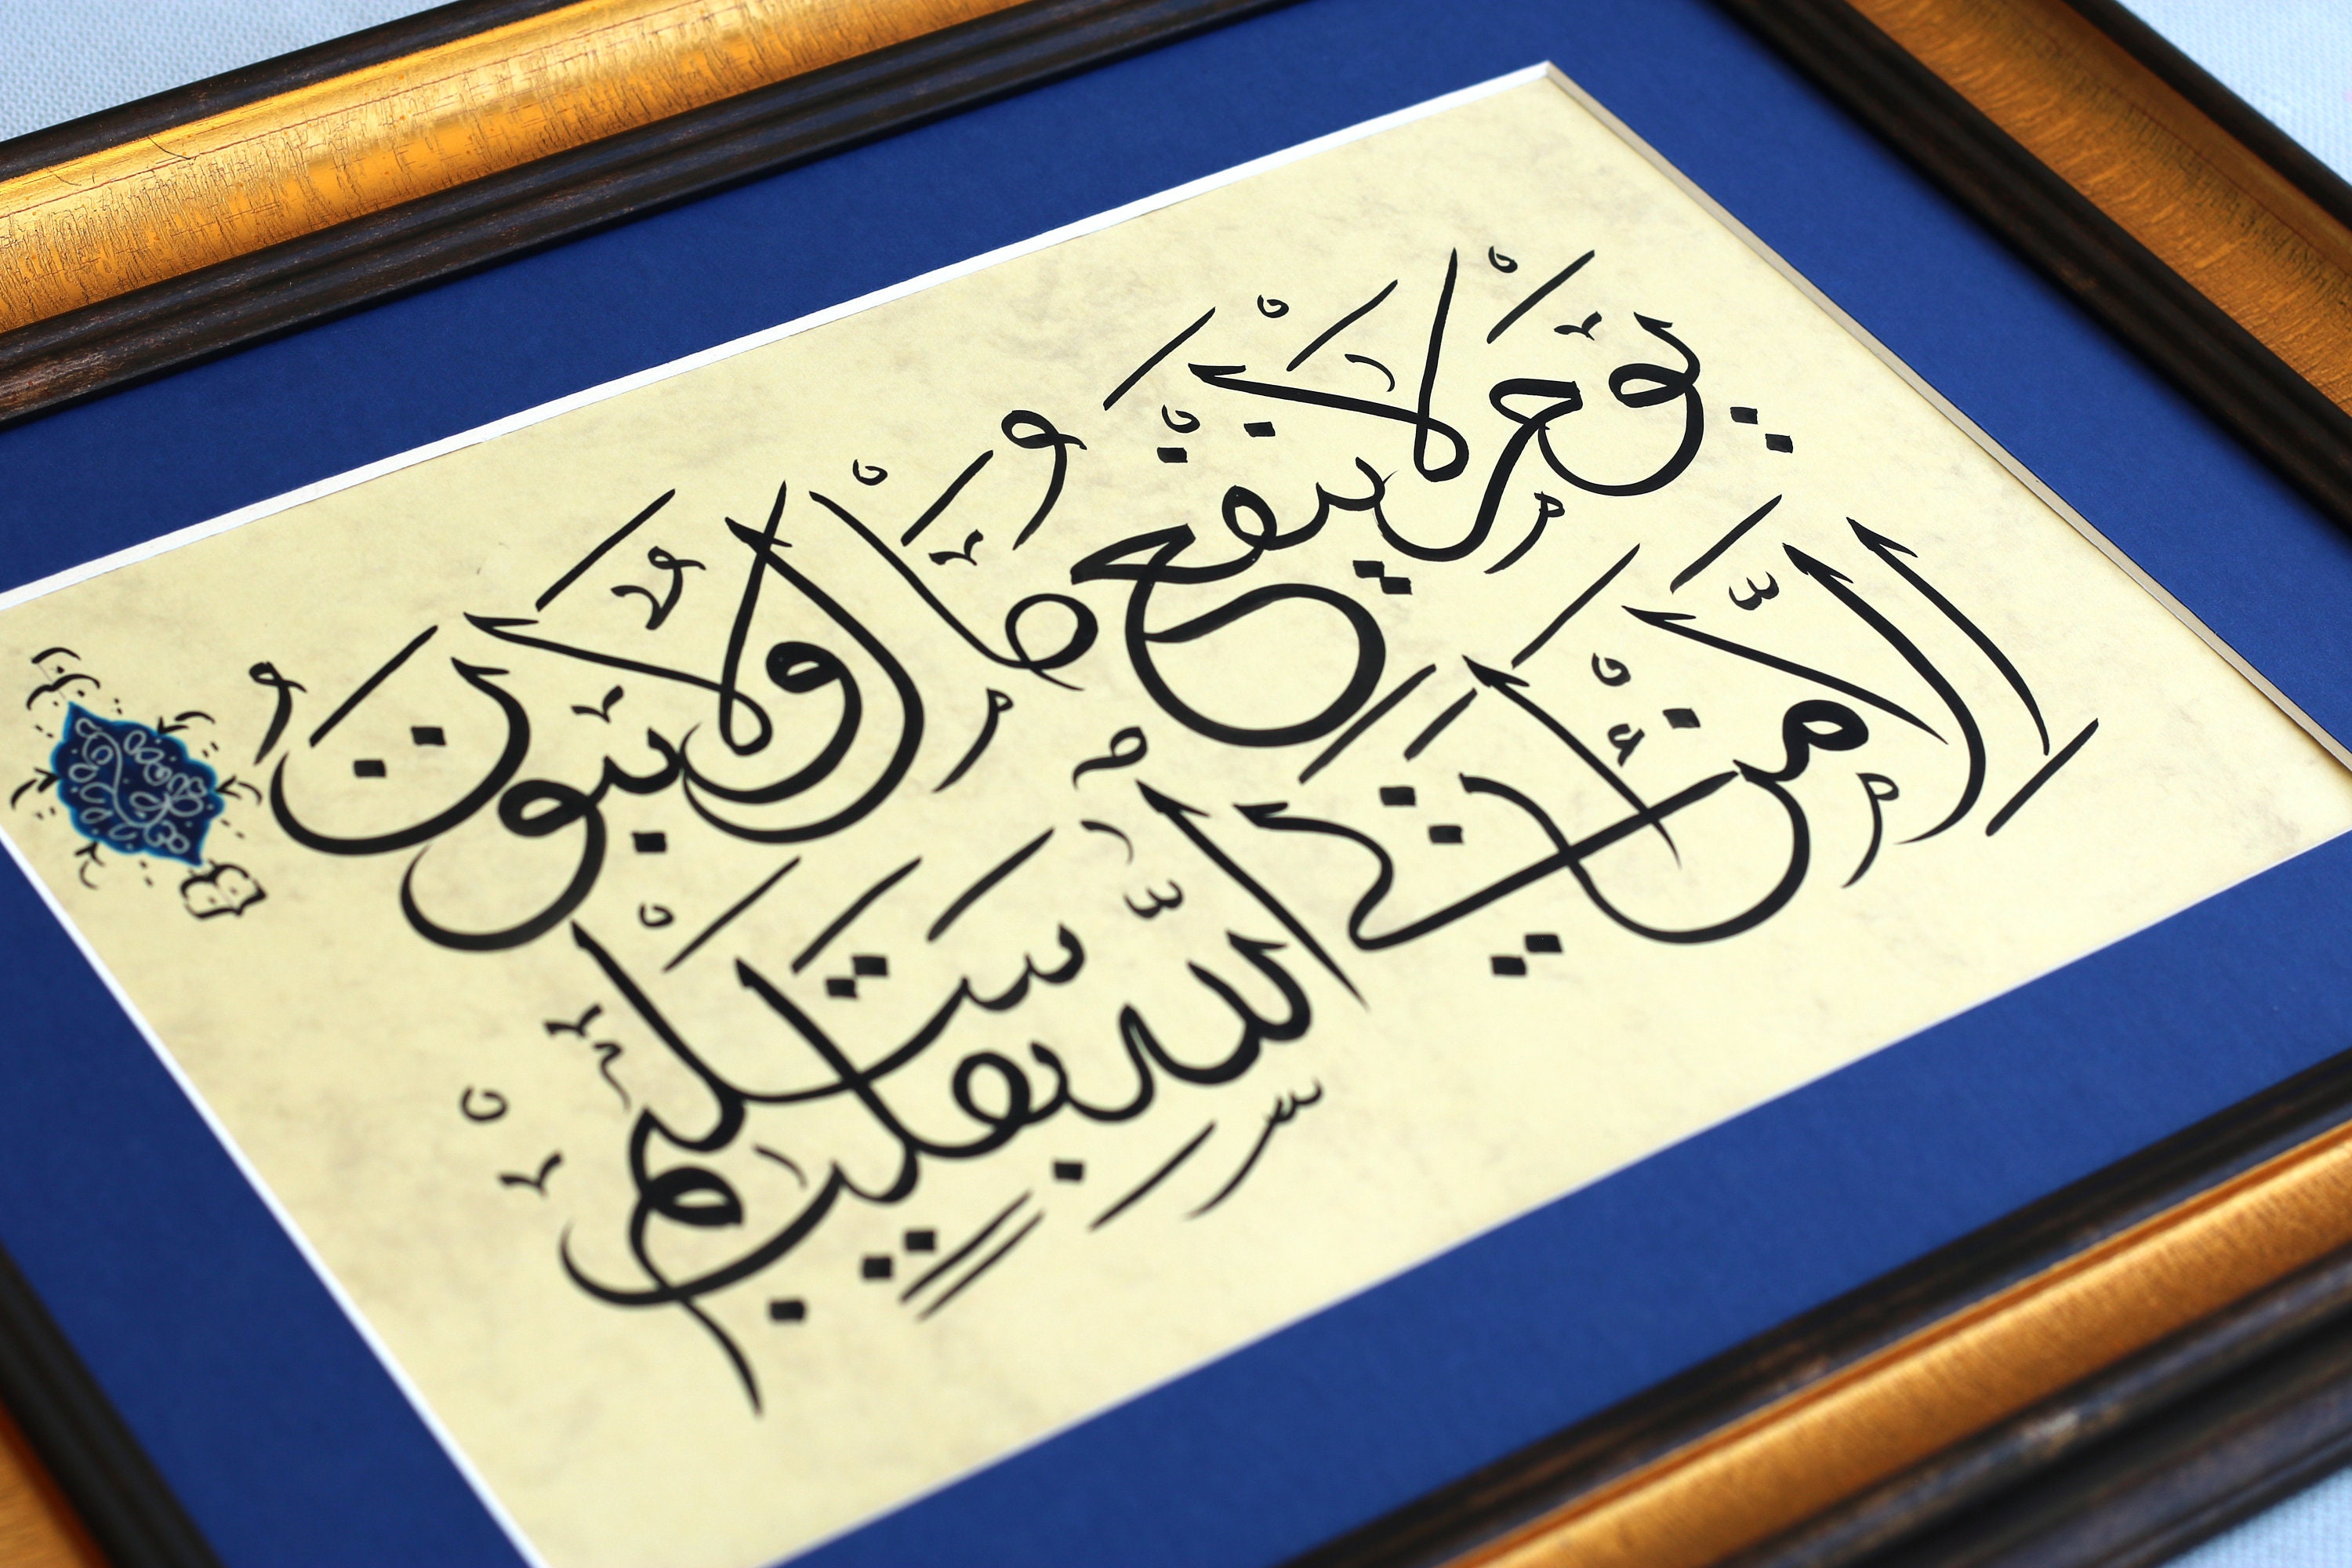 يَوْمَ لَا يَنْفَعُ مَالٌ وَلَا بَنُونَ
إِلَّا مَنْ أَتَى اللَّهَ بِقَلْبٍ سَلِيمٍ